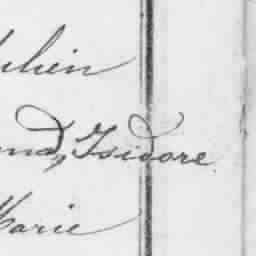 ulien
and, Isidore
Marie